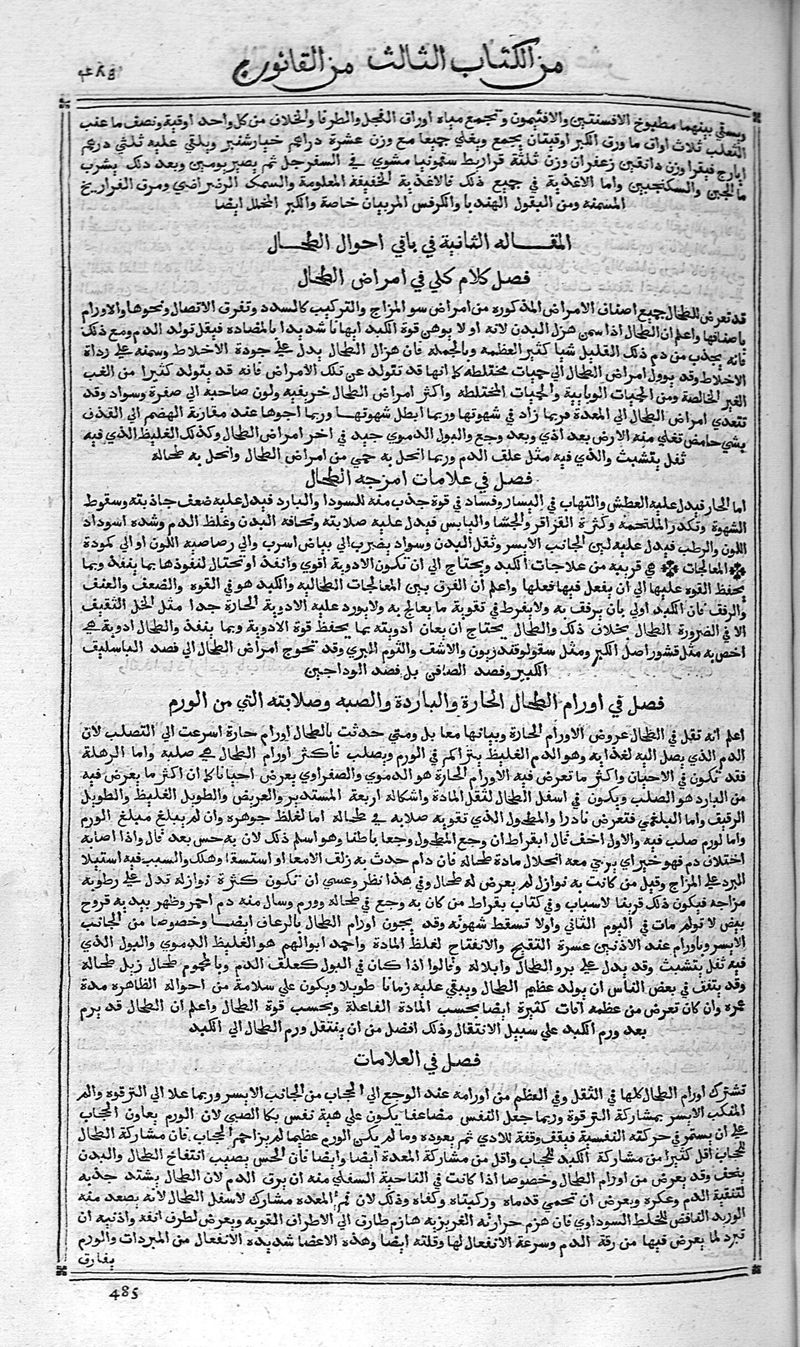 من الكتاب الثالث من القانون
٤٨٥
ويسقي بينهما مطبوخ الافسنتين والافتيمون وتجمع مياه اوراق الفجل والطرفا والخلاف من كل واحد اوقية ونصف ما عنب
الثعلب ثلاث اواق ما ورق الكبر اوقيتان يجمع ويغلي جميعا مع وزن عشرة دراهم خيارشنبر ويلقي عليه ثلثي درهم
ايارج فيقرا وزن دانقين زعفران وزن ثلثة قراريط سقمونيا مشوي في السفرجل ثم يصبر يومين وبعد ذلك يشرب
ما الجبن والسكنجبين واما الاغذية في جميع ذلك فالاغذية الخفيفة المعلومة والسمك الرضراضي ومرق الفراريخ
المسمنه ومن البقول الهندبا والكرفس المربيان خاصة والكبر المخلل ايضا
المقاله الثانية في باقي احوال الطحال
فصل كلام كلي في امراض الطحال
قد تعرض للطحال جميع اصناف الامراض المذكوره من امراض سو المزاج والتركيب كالسدد وتفرق الاتصال ونحوها والاورام
باصنافها واعلم ان الطحال اذا سمن هزل البدن لانه او لا يوهن قوة الكبد ايهانا شديدا بالمضاده فيقل تولد الدم ومع ذلك
فانه يجذب من دم ذلك القليل شيا كثير العظمه وبالجمله فان هزال الطحال يدل علي جودة الاخلاط وسمنه علي رداة
الاخلاط وقد يوول امراض الطحال الي حميات مختلطه كما انها قد تتولد عن تلك الامراض فانه قد يتولد كثيرا من الغب
الغير الخالصة ومن الحميات الوبايية والحميات المختلطه واكثر امراض الطحال خريفيه ولون صاحبه الي صفرة وسواد وقد
تتعدي امراض الطحال الي المعدة فربما زاد في شهوتها وربما ابطل شهوتها وربما اجوها عند مقاربة الهضم الي القذف
بشي حامض تغلي منه الارض بعد اذي وبعد وجع والبول الدموي جيد في اخر امراض الطحال وكذلك الغليظ الذي فيه
ثفل يتشبث والذي فيه مثل علق الدم وربما انحل به حمي من امراض الطحال وانحل به طحاله
فصل في علامات امزجه الطحال
اما الحار فيدل عليه العطش والتهاب في اليسار وفساد في قوة جذب منه للسودا والبارد فيدل عليه ضعف جاذبته وسقوط
الشهوة وتكدر الملتحمه وكثرة القراقر والجشا واليابس فيدل عليه صلابته ونحافه البدن وغلظ الدم وشده اسوداد
اللون والرطب فيدل عليه لين الجانب الايسر وثقل البدن وسواد يضرب الي بياض اسرب والي رصاصيه اللون او الي كمودة
المعالجات هي قريبه من علاجات الكبد ويحتاج الي ان تكون الادوية اقوي وانفذ او تحتال لنفوذها بما ينفذ وبما
يحفظ القوه عليها الي ان يفعل فيها فعلها واعلم ان الفرق بين المعالجات الطحاليه والكبد هو في القوه والضعف والعنف
والرفق فان الكبد اولي بان يرفق به ولا يفرط في تقوية ما يعالج به ولا يورد عليه الادوية الحارة جدا مثل الخل الثقيف
الا في الضرورة الطحال بخلاف ذلك والطحال يحتاج ان يعان ادويته بما يحفظ قوة الادوية وبما ينفذ والطحال ادوية هي
اخص به مثل قشور اصل الكبر ومثل سقولوقندريون والاشق والثوم البري وقد تحوج امراض الطحال الي فصد الباسليف
الكبير وفصد الصافن بل فصد الوداجين
فصل في اورام الطحال الحارة والباردة والصبه وصلابته التي من الورم
اعلم انه تقل في الطحال عروض الاورام الحارة وبياتها معا بل ومتي حدثت بالطحال اورام حارة اسرعت الي التصلب لان
الدم الذي يصل اليه لغذايه وهو الدم الغليظ يتراكم في الورم ويصلب فاكثر اورام الطحال هي صلبه واما الرهلة
فقد تكون في الاحيان واكثر ما تعرض فيه الاورام الحارة هو الدموي والصفراوي يعرض احيانا كما ان اكثر ما يعرض فيه
من البارد هو الصلب ويكون في اسفل الطحال لثقل المادة واشكاله اربعة المستدير والعريض والطويل الغليظ والطويل
الرقيق واما البلغمي فتعرض نادرا والمطحول الذي تقويه صلابه في طحاله اما لغلظ جوهره وان لم يبلغ مبلغ الورم
واما لورم صلب فيه والاول اخف قال ابقراط ان وجع المطحول وجعا باطنا وهو اسلم ذلك لان به حس بعد قال واذا اصابه
اختلاف دم فهو خير اي يرتجي معه انحلال مادة طحاله فان دام حدث به زلق الامعا او استسقا وهلك والسبب فيه استيلا
البرد علي المزاج وقيل من كانت به نوازل لم يعرض له طحال وفي هذا نظر وعسي ان تكون كثرة نوازله تدل علي رطوبه
مزاجه فيكون ذلك قريفا لاسباب وفي كتاب بقراط من كان به وجع في طحاله وورم وسال منه دم احمر وظهر بيديه قروح
بيض لا تولم مات في اليوم الثاني واولا تسقط شهوته وقد يجون اورام الطحال بالرعاف ايضا وخصوصا من الجانب
الايسر وباورام عند الاذنين عسرة التقيح والانفتاح لغلظ المادة واحمد ابوالهم هو الغليظ الدموي والبول الذي
فيه ثفل يتشبث وقد يدل علي برو الطحال وابلاله وقالوا اذا كان في البول كعلق الدم وبالمحموم طحال زبل طحاله
وقد يتفق في بعض الناس ان يولد عظيم الطحال ويبقي عليه زمانا طويلا ويكون علي سلامة من احواله الظاهره مدة
عمره وان كان تعرض من عظمه افات كثيرة ايضا بحسب المادة الفاعلة وبحسب قوة الطحال واعلم ان الطحال قد يرم
بعد ورم الكبد علي سبيل الانتقال وذلك افضل من ان ينتقل ورم الطحال الي الكبد
فصل في العلامات
تشترك اورام الطحال كلها في الثقل وفي العظم من اورامه عند الوجع الي الحجاب من الجانب الايسر وربما علا الي الترقوة والم
المنكب الايسر بمشاركة الترقوة وربما جعل النفس مضاعفا يكون علي هية نفس بكا الصبي لان الورم يعاون الحجاب
علي ان يستمر في حركته النفسية فيقف وقفة للاذي ثم يعوده وما لم يكن الورم عظيما لم يزاحم الحجاب فان مشاركة الطحال
للحجاب اقل كثيرا من مشاركة الكبد للحجاب واقل من مشاركة المعدة ايضا وايضا فان الحس يصيب انتفاخ الطحال والبدن
ينحف وقد يعرض من اورام الطحال وخصوصا اذا كانت في الناحية السفلي منه ان يرق الدم لان الطحال يشتد جذبه
لتنقية الدم وعكره ويعرض ان تحمي قدماه وركبتاه وكفاه وذلك لان فم المعده مشارك لاسفل الطحال لانه يصعد منه
الوريد النافض للخلط السوداوي فان هزم حرارته الغريزيه هازم طارق الي الاطراف القويه ويعرض لطرف انفه واذنيه ان
تبرد لما يعرض فيها من رقة الدم وسرعة الانفعال لها وقلته ايضا وهذه الاعضا شديدة الانفعال من المبردات والورم
يفارق
485